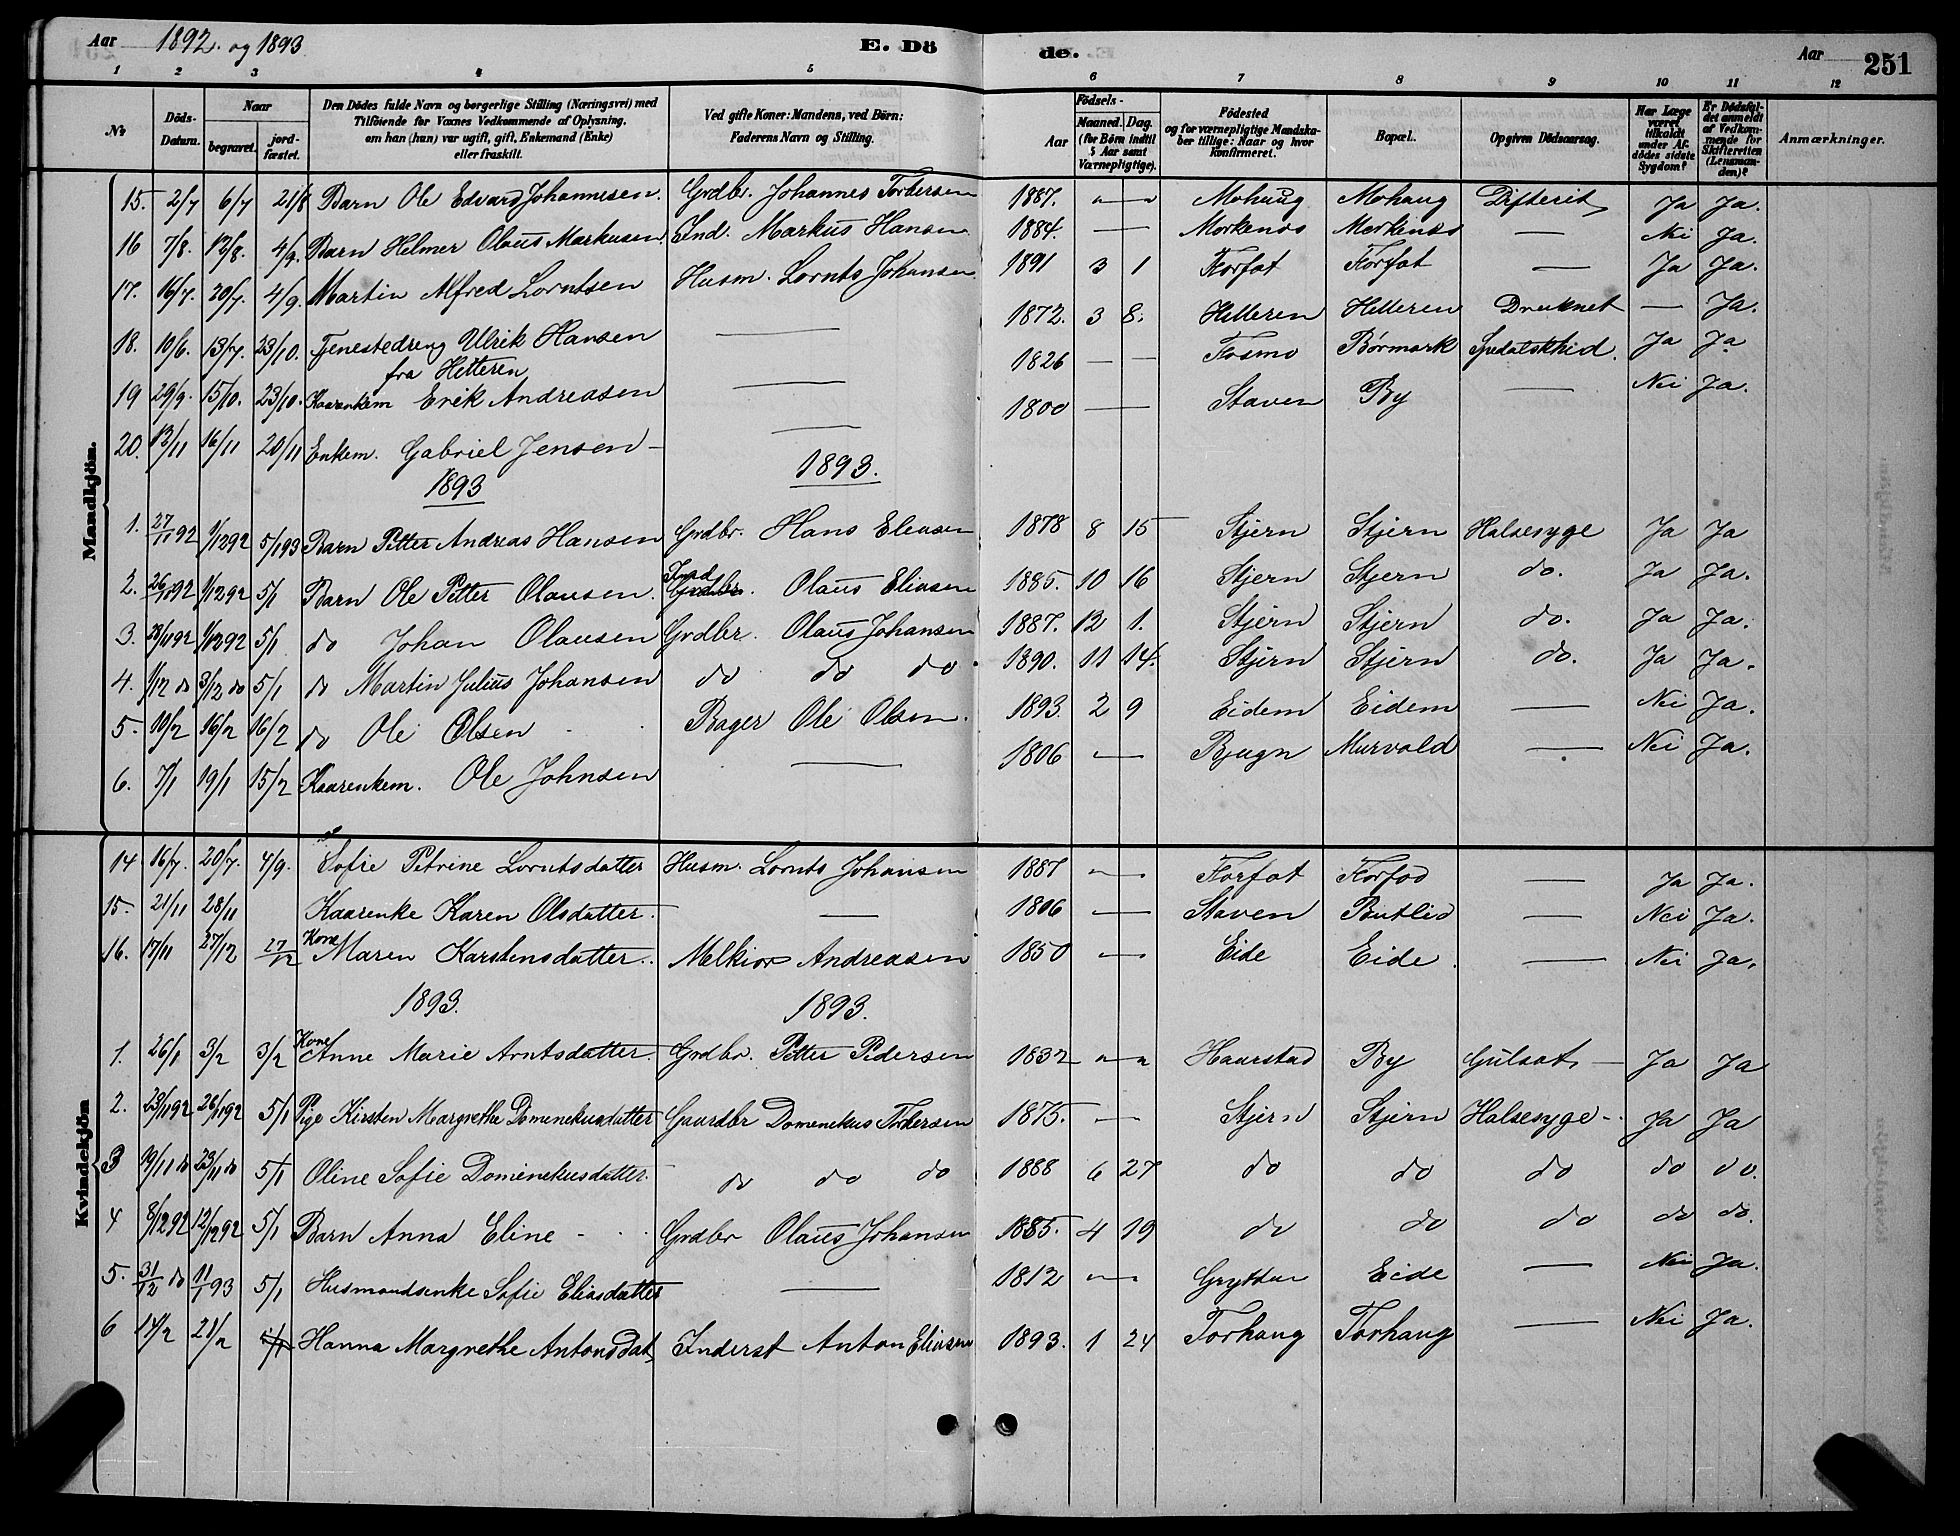 Aar 1892. og 1893 E. Döde. Aar 251
1 2 3 4 5 6 7 8 9 10 11 12
No
Döds-Datum.
Naar begravet. jordfæstet.
Den Dödes fulde Navn og borgerlige Stilling (Næringsvei) med Tilföiende for Voxnes Vedkommende af Oplysning, om han (hun) var ugift, gift, Enkemand (Enke) eller fraskilt.
Ved gifte Koner: Mandens, ved Börn: Faderens Navn og Stilling.
Födsels-
Aar Maaned. Dag. (for Börn indtil 5 Aar samt Værnepligtige).
Födested og for værnepligtige Mandskaber tillige: Naar og hvor konfirmeret.
Bopæl.
Opgiven Dödsaarsag.
Har Læge været tilkaldt under Afdödes sidste Sygdom?
Er Dödsfaldet anmeldt af Vedkommende for Skifteretten (Lensmanden)?
Anmærkninger.
Mandkjön.
15. 2/7 6/7 21/8 Barn Ole Edvard Johannesen. Grdbr. Johannes Tordersen 1887. " — " Mohaug Mohaug Difterit Ja Ja.
16 7/8. 12/8. 4/9. Barn Helmer Olaus Markusen. Ind. Markus Hansen 1884. — Morkenes Morkenes — Nei Ja.
17. 16/7. 20/7. 4/9. Martin Alfred Lorntsen Husm. Lornts Johansen 1891 3 1 Forfot Forfot — Ja Ja.
18. 10/6. 13/7. 23/10. Tjenestedreng Ulrik Hansen fra Hitteren — 1872. 3 8. Hitteren Hitteren Druknet — Ja.
19 29/9. 15/10. 23/10. Kaarenkem Erik Andreasen — 1826 — — Fosmo Börmark Spedalskhed. Ja Ja
20. 13/11 16/11 20/11 Enkem. Gabriel Jensen — — 1800 — Staven By — Nei Ja.
1893 1893.
1. 27/11 92 1/12 92 5/1 93 Barn Petter Andreas Hansen Grdbr. Hans Eliasen 1878 8 15 Stjern Stjern Halsesyge Ja Ja
2. 26/11 92 1/12 92 5/1 Barn Ole Petter Olausen. Ind Grdbr. Olaus Eliasen 1885. 10 16 Stjern Stjern do. Ja Ja.
3. 28/11 92 1/12 92 5/1 do Johan Olausen Grdbr. Olaus Johansen 1887. 12 1. Stjern Stjern do. Ja Ja.
4. 1/12 do 3/12 do 5/1 do Martin Julius Johansen do do do 1890. 11 14. Stjern Stjern do. Ja Ja.
5. 10/2 16/2 16/2 do Ole Olsen Bager Ole Olsen. 1893. 2 9 Eidem Eidem — Nei Ja.
6. 7/1 19/1 15/2 Kaarenkem. Ole Johnsen — 1806 " — Bjugn Murvold — Nei Ja.
Kvindekjön
14 16/7. 20/7. 4/9. Sofie Petrine Lorntsdatter Husm. Lornts Johansen 1887 " — Forfot Forfod — Ja Ja.
15. 21/11 28/11 Kaarenke Karen Olsdatter. — 1806 " — Staven Butlid — Nei Ja.
16. 17/11 27/12 27/12 Kone Maren Karstensdatter. Melkior Andreasen 1850 " — Eide Eide. — Nei Ja.
1893. 1893.
1. 26/1 3/2 3/2 Kone Anne Marie Arntsdatter. Grdbr. Petter Pedersen 1832 " — " Haarstad By Gulsot — Ja Ja
2. 23/11 92 26/11 92 5/1 Pige Kirsten Margrethe Domenekusdatter Gaardbr Domenekus Tordersen 1875. " — Stjern Stjern Halsesyge - Ja Ja
3 19/11 do 23/11 do 5/1 Oline Sofie Domenekusdatter. do do do 1888 6 27 do do do do do.
4 8/12 92 12/12 92 5/1 Barn Anna Eline - Grdbr Olaus Johansen 1885. 4 19 do do do do do.
5. 31/12 do 11/1 93 5/1 Husmandsenke Sofie Eliasdatter — 1812 " — Eide — Nei Ja.
6 14/2 21/2 Hanna Margrethe Antonsdat. Inderst Anton Eliasen 1893. 1 24 Torhaug Torhaug — Nei Ja.